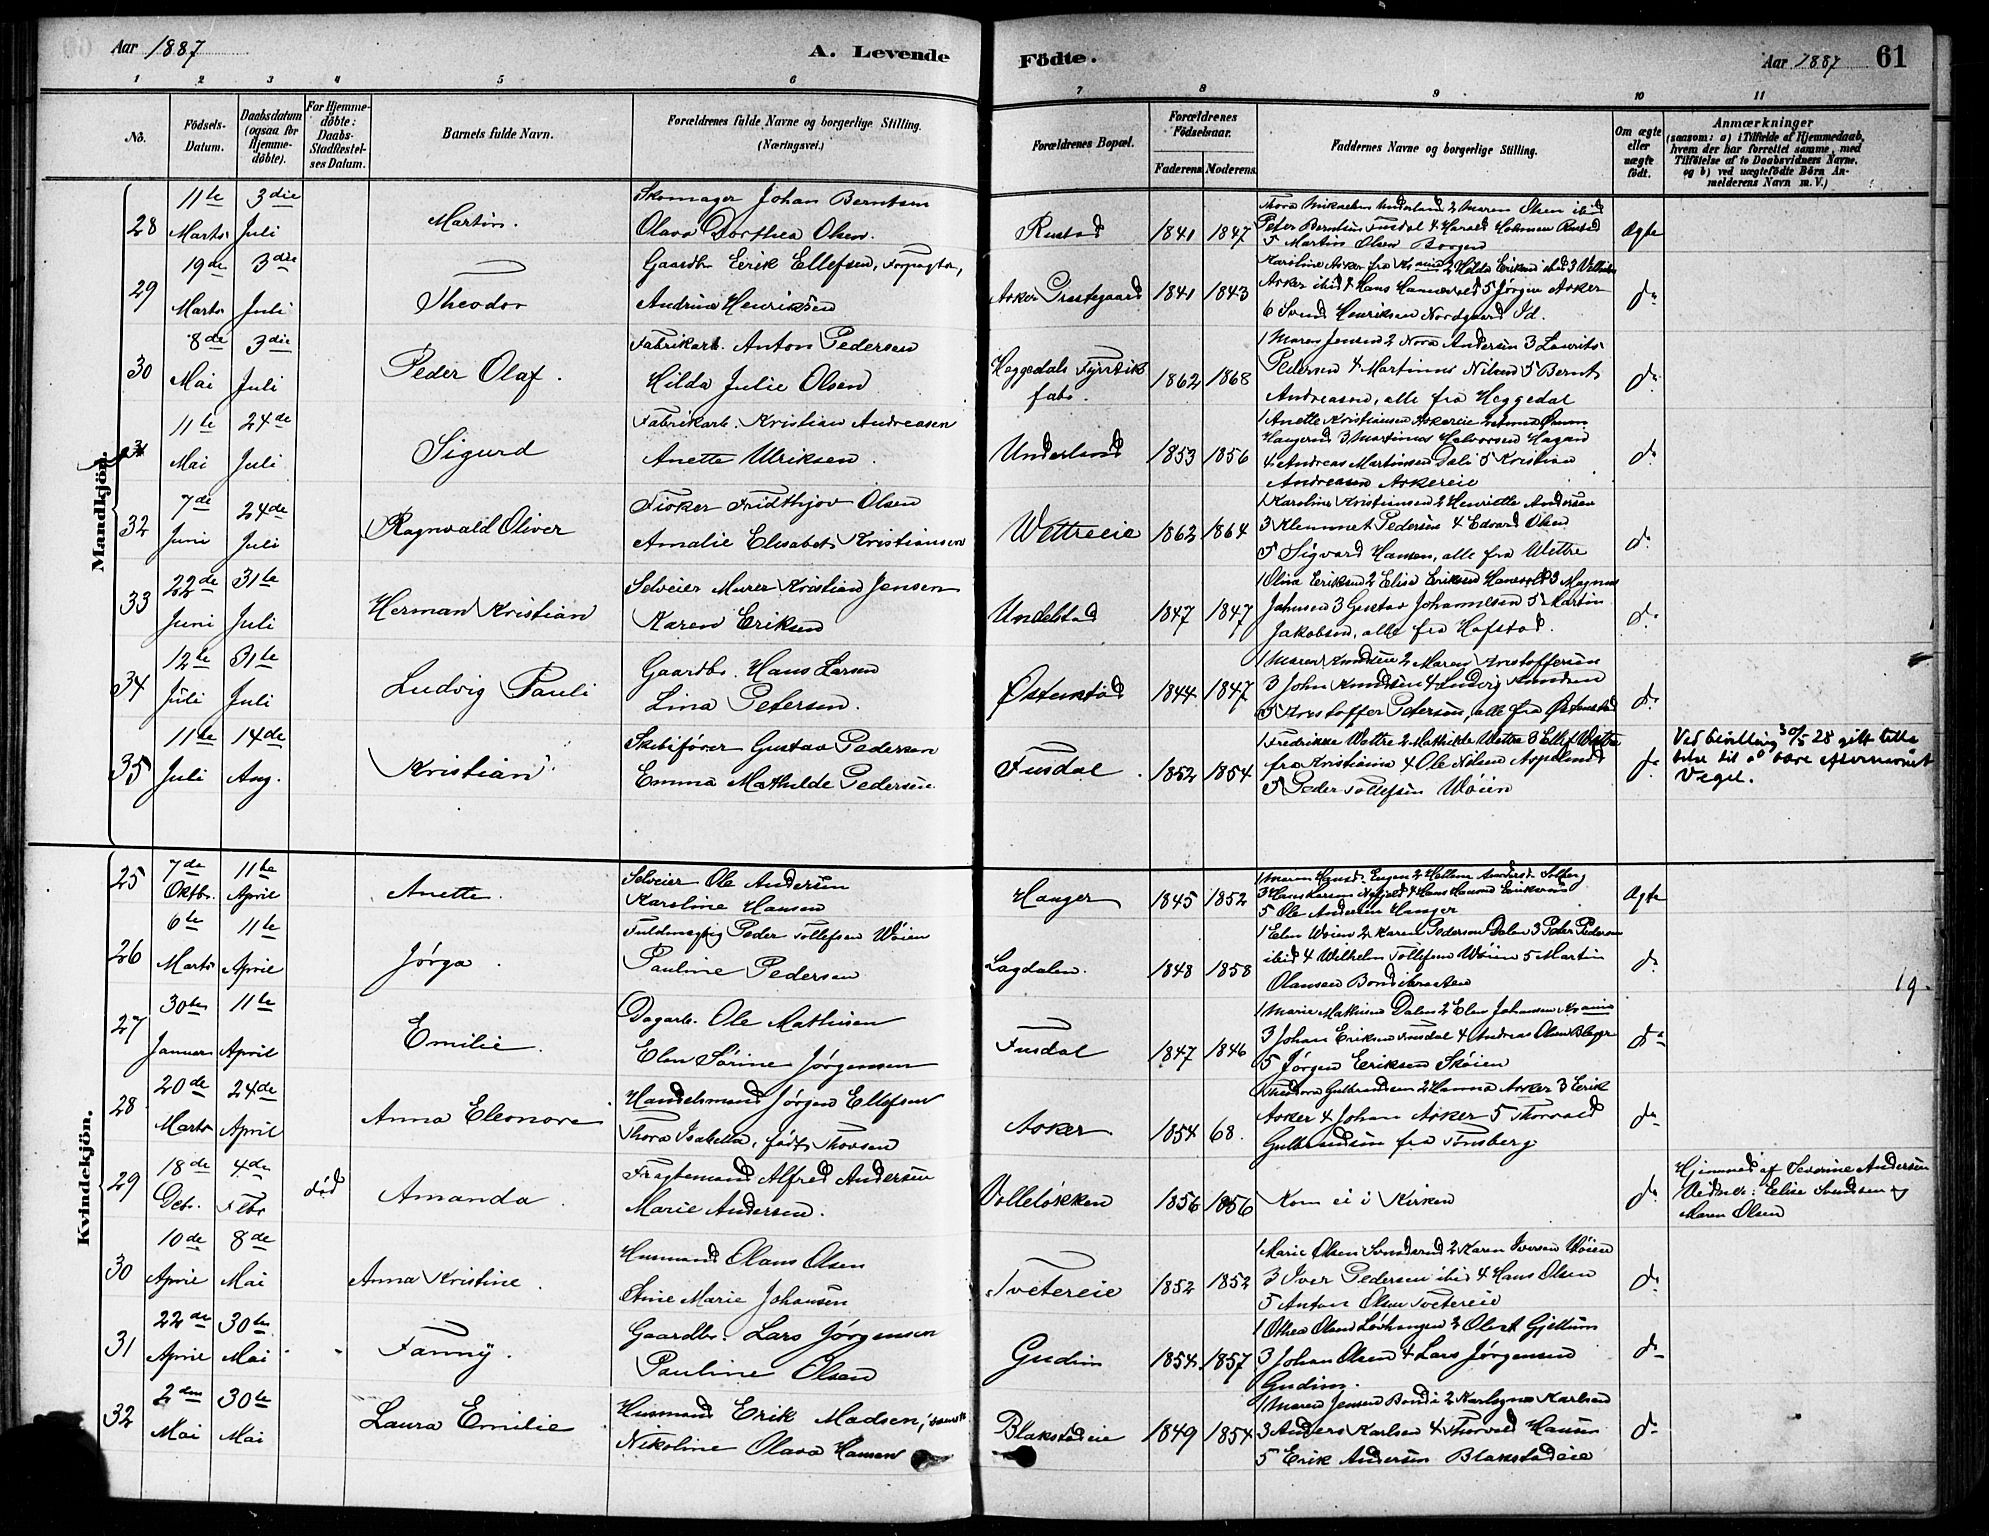 Aar 1887
A. Levende
Födte.
Aar 1887 61
1 2 3 4 5 6 7 8 9 10 11
No.
Födsels-Datum.
Daabsdatum (ogsaa for Hjemme-döbte).
For Hjemme-döbte: Daabs-Stadfæstel-ses Datum.
Barnets fulde Navn.
Forældrenes fulde Navne og borgerlige Stilling. (Næringsvei.)
Forældrenes Bopæl.
Forældrenes Födselsaar.
Faderens Moderens
Faddernes Navne og borgerlige Stilling.
Om ægte eller uægte födt.
Anmærkninger
(saasom: a) i Tilfælde af Hjemmedaab, hvem der har forrettet samme, med Tilföielse af to Daabsvidners Navne, og b) ved uægtefödte Börn An-melderens Navn m. V.)
Mandkjön.
28 11te Marts 3die Juli Martin. Skomager Johan Berntsen
Olava Dorthea Olsen. Rustad 1841 1847
Peter Berntsen Fusdal 4 Harald Rustad
5 Martin Olsen Borgen Ægte
29 19de Marts 3die Juli Theodor Gaardbr. Eirik Ellefsen, Forpagter,
Andrine Henriksen Asker Præstegaard 1841 1843
Asker ibid 4 Hans 5 Jørgen Asker
6 Svend Henriksen Nordgaard Id. do
30 8de Mai 3die Juli Peder Olaf. Fabrikarb. Anton Pedersen
Hilda Julie Olsen Heggedals Fyrstik fabr. 1862 1868
1 Maren Jensen 2 Nora Andersen 3 Laurits
Pedersen 4 Martinus Nilsen 5 Bernt
Andreasen, alle fra Heggedal do
31 11te Mai 24de Juli Sigurd Fabrikarb. Kristian Andreasen
Anette Ulriksen. Underland 1853 1856
1 Anette Kristiansen Askereie 2 Anna
3 Martinus Halvorsen Hagan
4 Andreas Martinsen Dali 5 Kristian
Andreasen Askereie do
32 7de Juni 24de Juli Ragnvald Oliver Fisker Fridthjov Olsen
Amalie Elisabet Kristiansen Wettreeie 1862 1864
1 Karoline Kristiansen 2 Henriette Andersen
3 Klemmet Pedersen 4 Edvard Olsen
5 Sigvard Hansen, alle fra Wettre do
33 22de Juni 31te Juli Herman Kristian Selveier Murer Kristian Jensen
Karen Eriksen Undelstad 1847 1847
1 Olina Eriksen 2 Elise Eriksen 3 Magnus
Johnsen 3 Gustav Johannesen 5 Martin
Jakobsen, alle fra Hofstad. do
34 12te Juli 31te Juli Ludvig Pauli Gaardbr. Hans Larsen
Lina Petersen. Østenstad 1844 1847
1 Maren Knudsen 2 Maren Kristoffersen
3 John Knudsen 4 Ludvig Knudsen
5 Kristoffer Petersen, alle fra Østenstad do
35 11te Juli 14de Aug. Kristian Skibsfører Gustav Pedersen
Emma Mathilde Pedersen. Fusdal. 1852 1854
1 Fredrikke Wettre 2 Mathilde Wettre 3 Ellef Wettre
fra Kristiania 4 Ole Nilsen Aspelund
5 Peder Tollefsen Wøien do
Ved bevilling 30/5 28 gitt tilla
telse til å bære efternavnet
Vegel.
Kvindekjön.
25 7de Oktbr. 11te April Anette. Selveier Ole Andersen
Karoline Hansen Hanger 1845 1852
3 Hans Larsen 4 Hans Hansen
5 Ole Andersen Hanger Ægte
26 6te Marts 11te April Jørga. Fuldmægtig Peder Tollefsen Wøien
Pauline Pedersen Lagdalen. 1848 1858
1 Elen Wøien 2 Karen Pedersen Dalen 3 Peder Pedersen
ibid 4 Wilhelm Tollefsen Wøien 5 Martin
Olaussen Bondibraaten do
19
27 30te Januar 11te April Emilie. Dagarb. Ole Mathisen
Elen Sørine Jørgensen Fusdal 1847 1846
1 Marie Mathisen Dalen 2 Elen Johansen Krania
3 Johan Eriksen Fusdal 4 Andreas Olsen
5 Jørgen Eriksen Skøien do
28 20de Marts 24de April Anna Eleonore Handelsmand Jørgen Ellefsen
Thora Isabella, født Thovsen Asker 1854 68.
1 Theodora Gulbrandsen 2 Hanna Asker 3 Erik
Asker 4 Johan Asker 5 Thorvald
Gulbrandsen fra Tønsberg do
29 18de Debr. 4de Febr død Amanda Fragtemand Alfred Andersen
Marie Andersen. Volleløkken 1856 1856 Kom ei i Kirken do
Hjemmed af Severine Andersen
Vidner: Elise Svendsen og
Maren Olsen
30 10de April 8de Mai Anna Kristine. Husmand Olaus Olsen
Stine Marie Johansen Tvetereie 1852 1852
1 Marie Olsen 2 Karen Iversen Wøien
3 Iver Pedersen ibid 4 Hans Olsen
5 Anton Olsen Tvetereie do
31 22de April 30te Mai Fanny. Gaardbr. Lars Jørgensen
Pauline Olsen Gudim 1854 1857
1 Othea Olsen 2 Olest Gjellum
3 Johan Olsen 4 Lars Jørgensen
Gudim. do
32 2den Mai 30te Mai Laura Emilie Husmand Erik Madsen,
Nikoline Olava Hansen Blakstadeie 1849 1854
1 Maren Jensen Bondi 2 Karlsen
3 Anders Karlsen 4 Thorvald Hansen
5 Erik Andersen Blakstadeie do